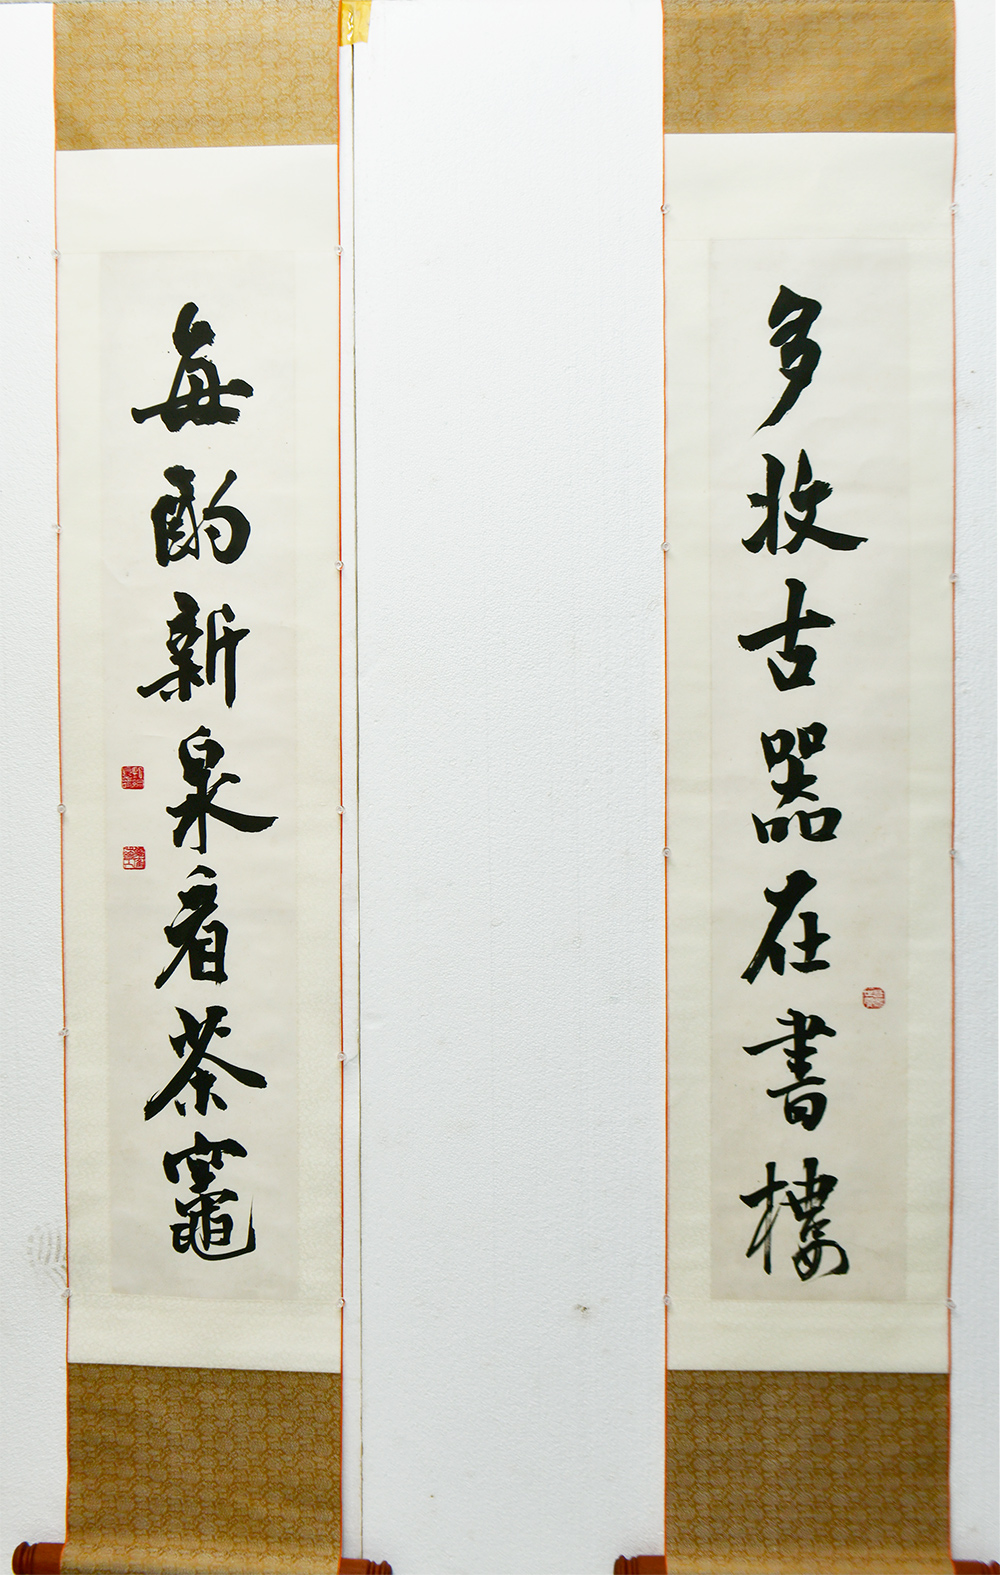 多收古器在書樓
每酌新泉看茶竈